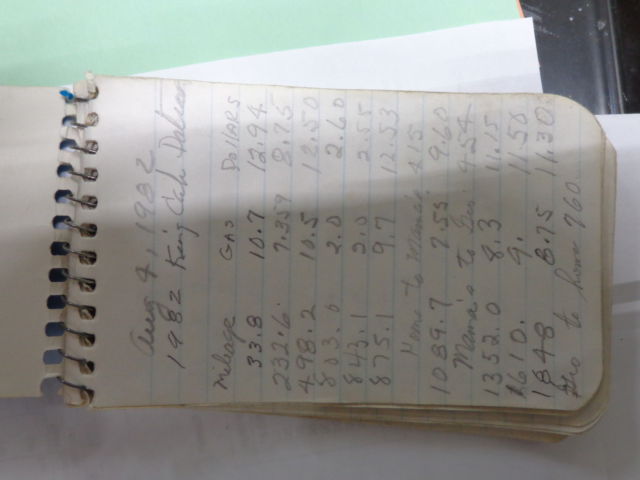 Aug 4, 1982
1982 King Cab Datsun
Mileage GAS Dollars
33.8 10.7 12.94
232.6 7.359 8.75
498.2 10.5 12.50
803.0 2.0 2.60
843.1 2.0 2.55
875.1 9.7 12.53
Home to Mama's 415
1089.7 7.55 9.60
Mama's to 454
1352.0 8.3 11.15
1610. 9. 11.50
1848 8.75 11.30
to home 760